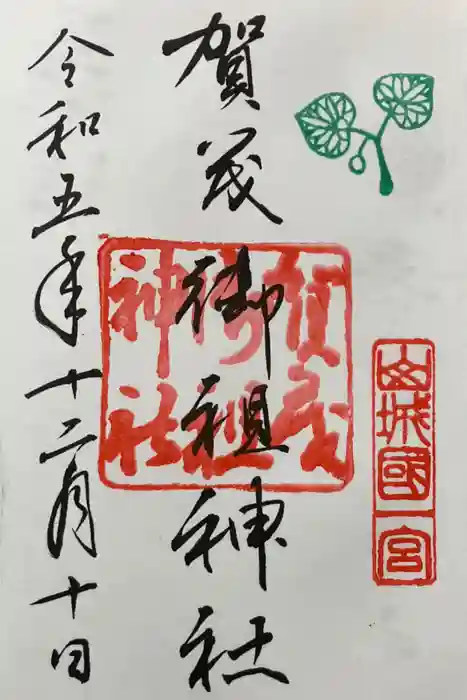 山城國一宮
賀茂御祖神社
賀茂御祖神社
令和五年十二月十日